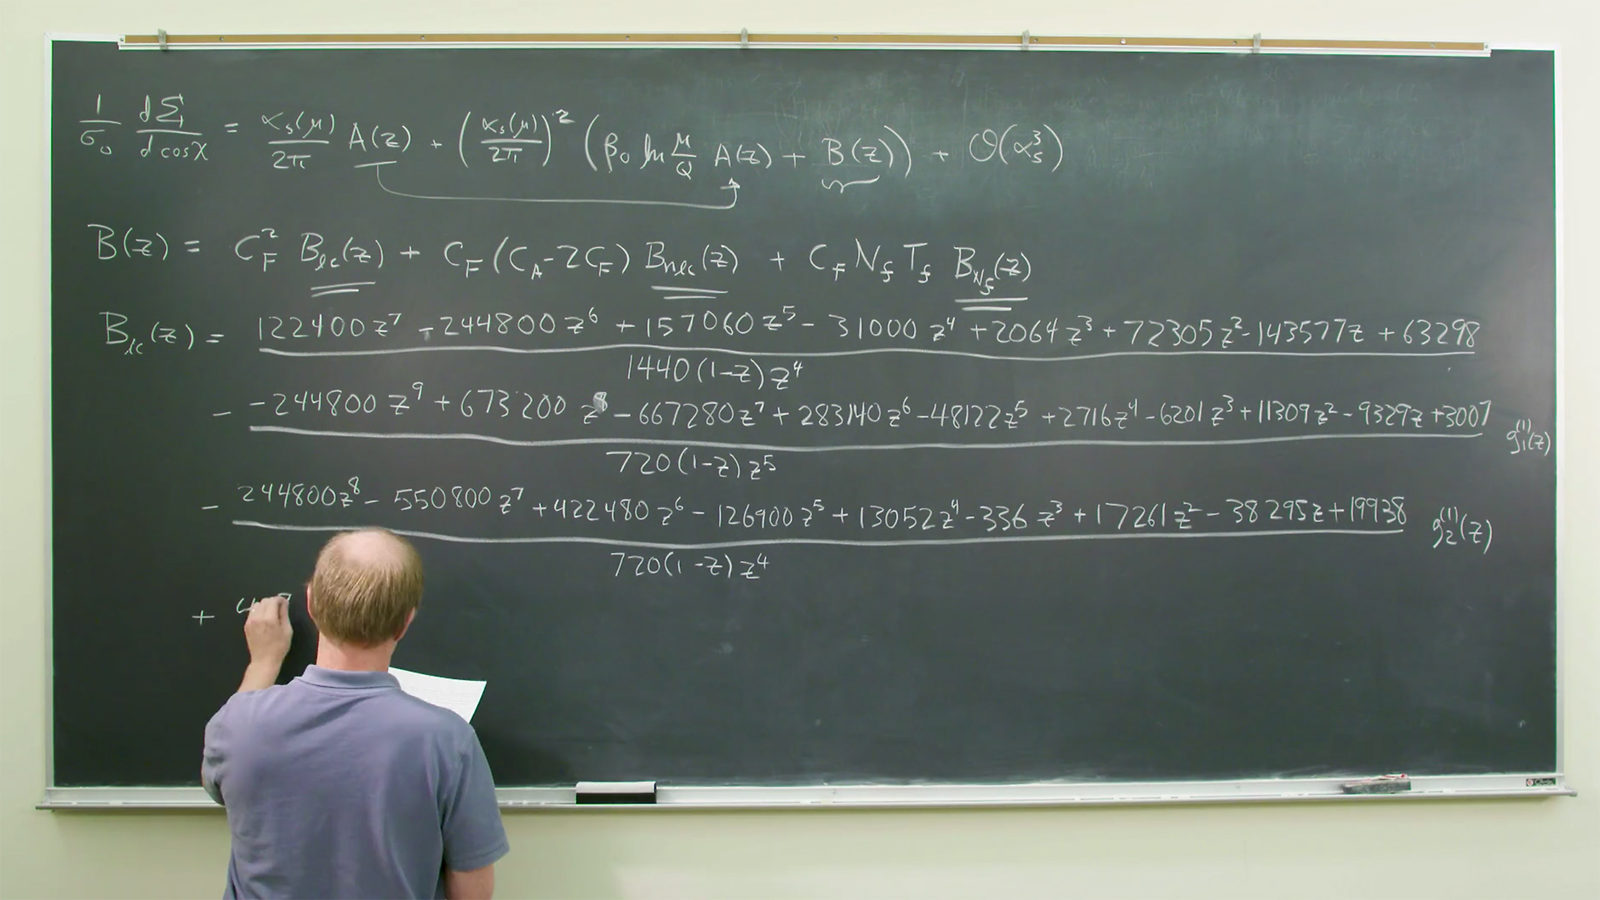 1/σ₀ dΣ/d cosχ = αₛ(μ)/2π A(z) + (αₛ(μ)/2π)² (β₀ ln μ/Q A(z) + B(z)) + O(αₛ³)
B(z) = C_F² B_lc(z) + C_F(C_A-2C_F) B_nlc(z) + C_F N_f T_f B_N_f(z)
B_lc(z) = 122400z⁷ - 244800z⁶ + 157060z⁵ - 31000z⁴ + 2064z³ + 72305z² - 143577z + 63298
1440(1-z)z⁴
- -244800z⁹ + 673200z⁸ - 667280z⁷ + 283140z⁶ - 48122z⁵ + 2716z⁴ - 6201z³ + 11309z² - 9329z + 3007 g₁⁽¹⁾(z)
720(1-z)z⁵
- 244800z⁸ - 550800z⁷ + 422480z⁶ - 126900z⁵ + 13052z⁴ - 336z³ + 17261z² - 38295z + 19938 g₂⁽¹⁾(z)
720(1-z)z⁴
+